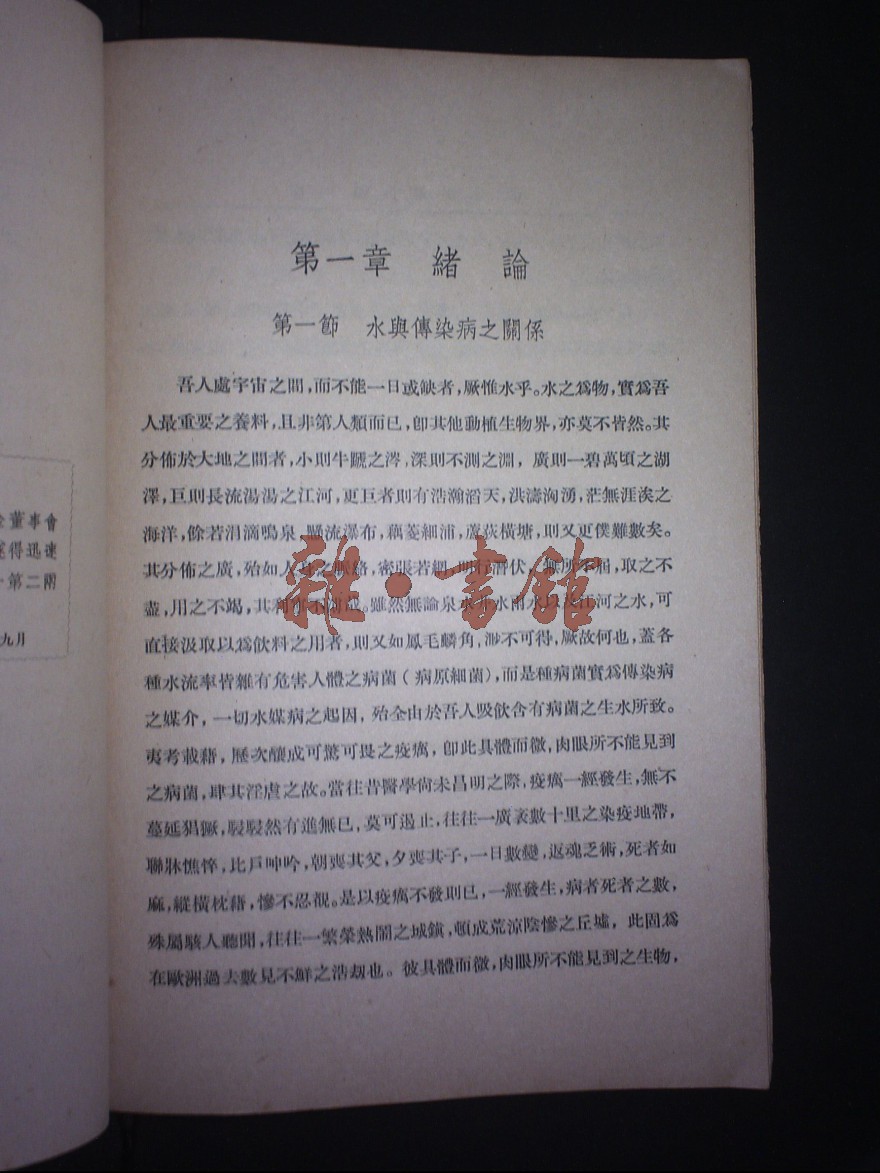 第一章　緒　論
第一節　水與傳染病之關係
吾人處宇宙之間，而不能一日或缺者，厥惟水乎。水之爲物，實爲吾
人最重要之養料，且非第人類而已，卽其他動植生物界，亦莫不皆然。其
分佈於大地之間者，小則牛蹏之涔，深則不測之淵，廣則一碧萬頃之湖
澤，巨則長流湯湯之江河，更巨者則有浩瀚滔天，洪濤洶湧，茫無涯涘之
海洋，餘若涓滴鳴泉，驟流瀑布，藕菱細浦，蘆荻橫塘，則又更僕難數矣。
其分佈之廣，殆如人身之脈絡，密張若網，明行潛伏，無所不屆，取之不
盡，用之不竭，其利實不淺哉。雖然無論泉水井水雨水以及江河之水，可
直接汲取以爲飲料之用者，則又如鳳毛麟角，渺不可得，厥故何也，蓋各
種水流率皆雜有危害人體之病菌（病原細菌），而是種病菌實爲傳染病
之媒介，一切水媒病之起因，殆全由於吾人吸飲含有病菌之生水所致。
夷考載藉，歷次釀成可驚可畏之疫癘，卽此具體而微，肉眼所不能見到
之病菌，肆其淫虐之故。當往昔醫學尙未昌明之際，疫癘一經發生，無不
蔓延猖獗，駸駸然有進無已，莫可遏止，往往一廣袤數十里之染疫地帶，
聯牀憔悴，比戶呻吟，朝喪其父，夕喪其子，一日數變，返魂乏術，死者如
麻，縱橫枕藉，慘不忍覩。是以疫癘不發則已，一經發生，病者死者之數，
殊屬駭人聽聞，往往一繁榮熱鬧之城鎮，頓成荒涼陰慘之丘墟，此固爲
在歐洲過去數見不鮮之浩刼也。彼具體而微，肉眼所不能見到之生物，
董事會
得迅速
第二兩
九月
雜·書館